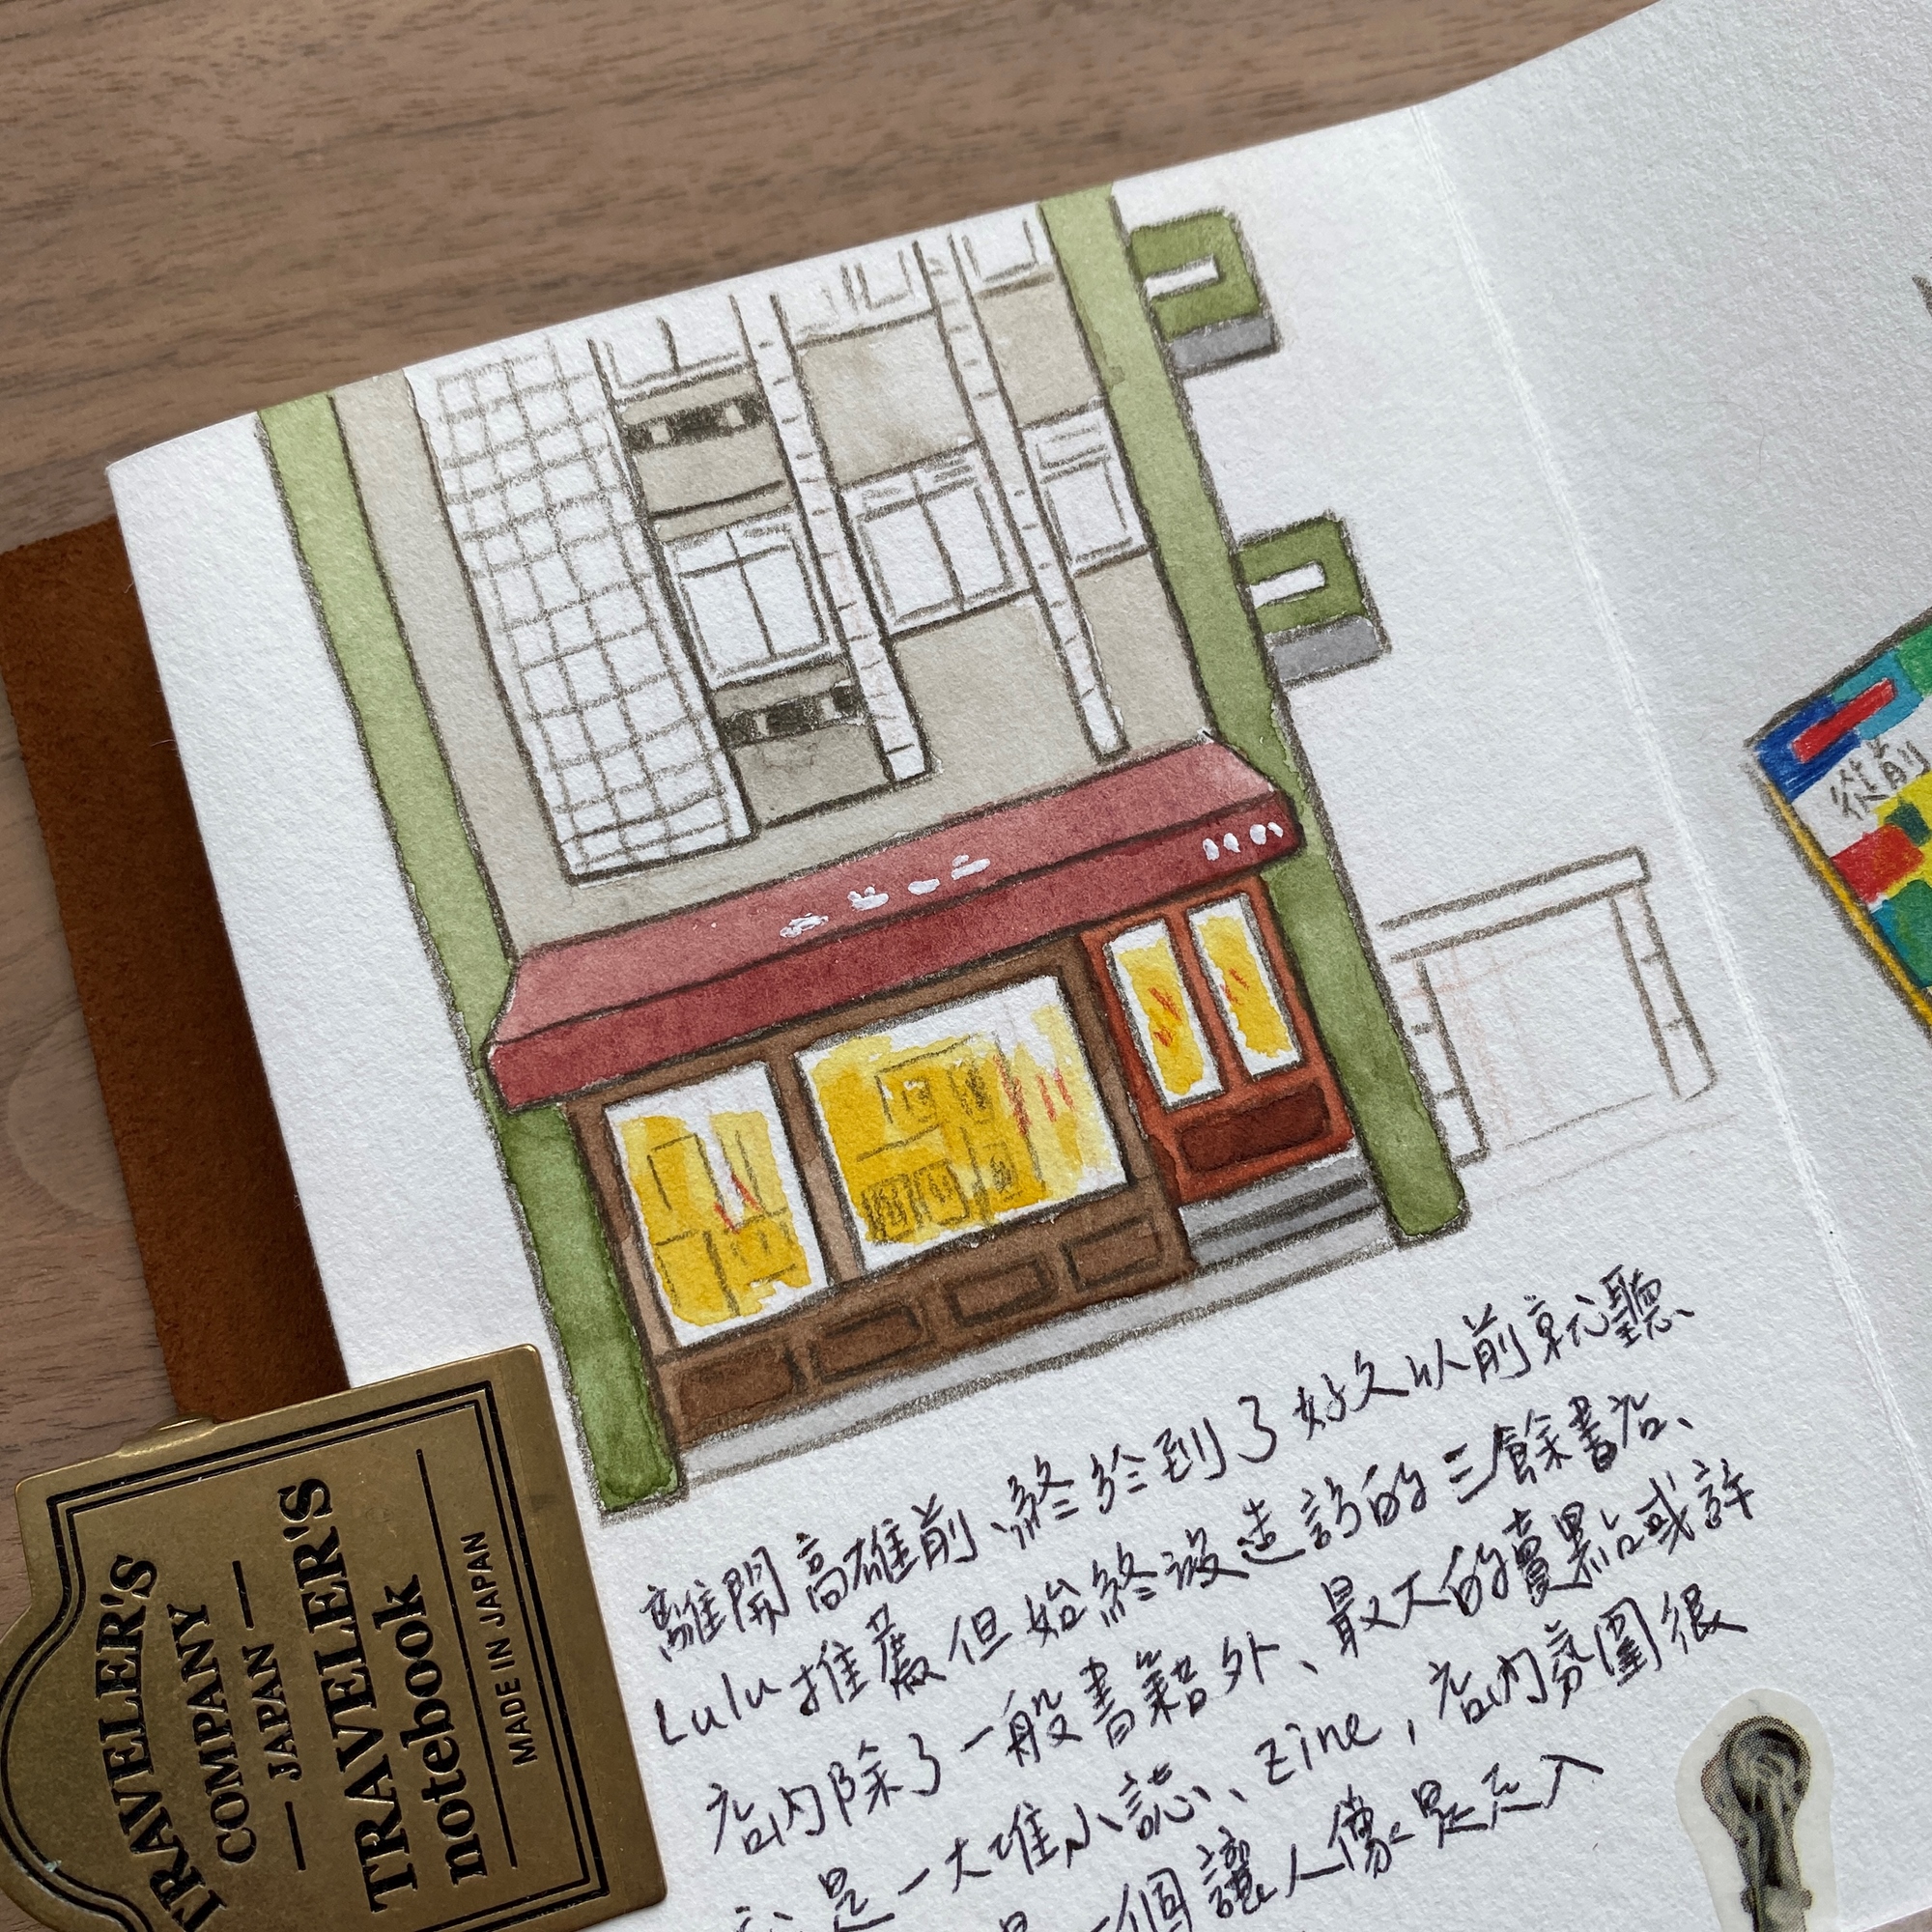 從前
離開高雄前、終於到了好久以前就聽
Lulu推薦但始終沒造訪的三餘書店、
店內除了一般書籍外、最大的賣點或許
是一大堆小誌、zine，店內氛圍很
一個讓人像是走入
TRAVELER'S
COMPANY
JAPAN
TRAVELER'S
notebook
MADE IN JAPAN